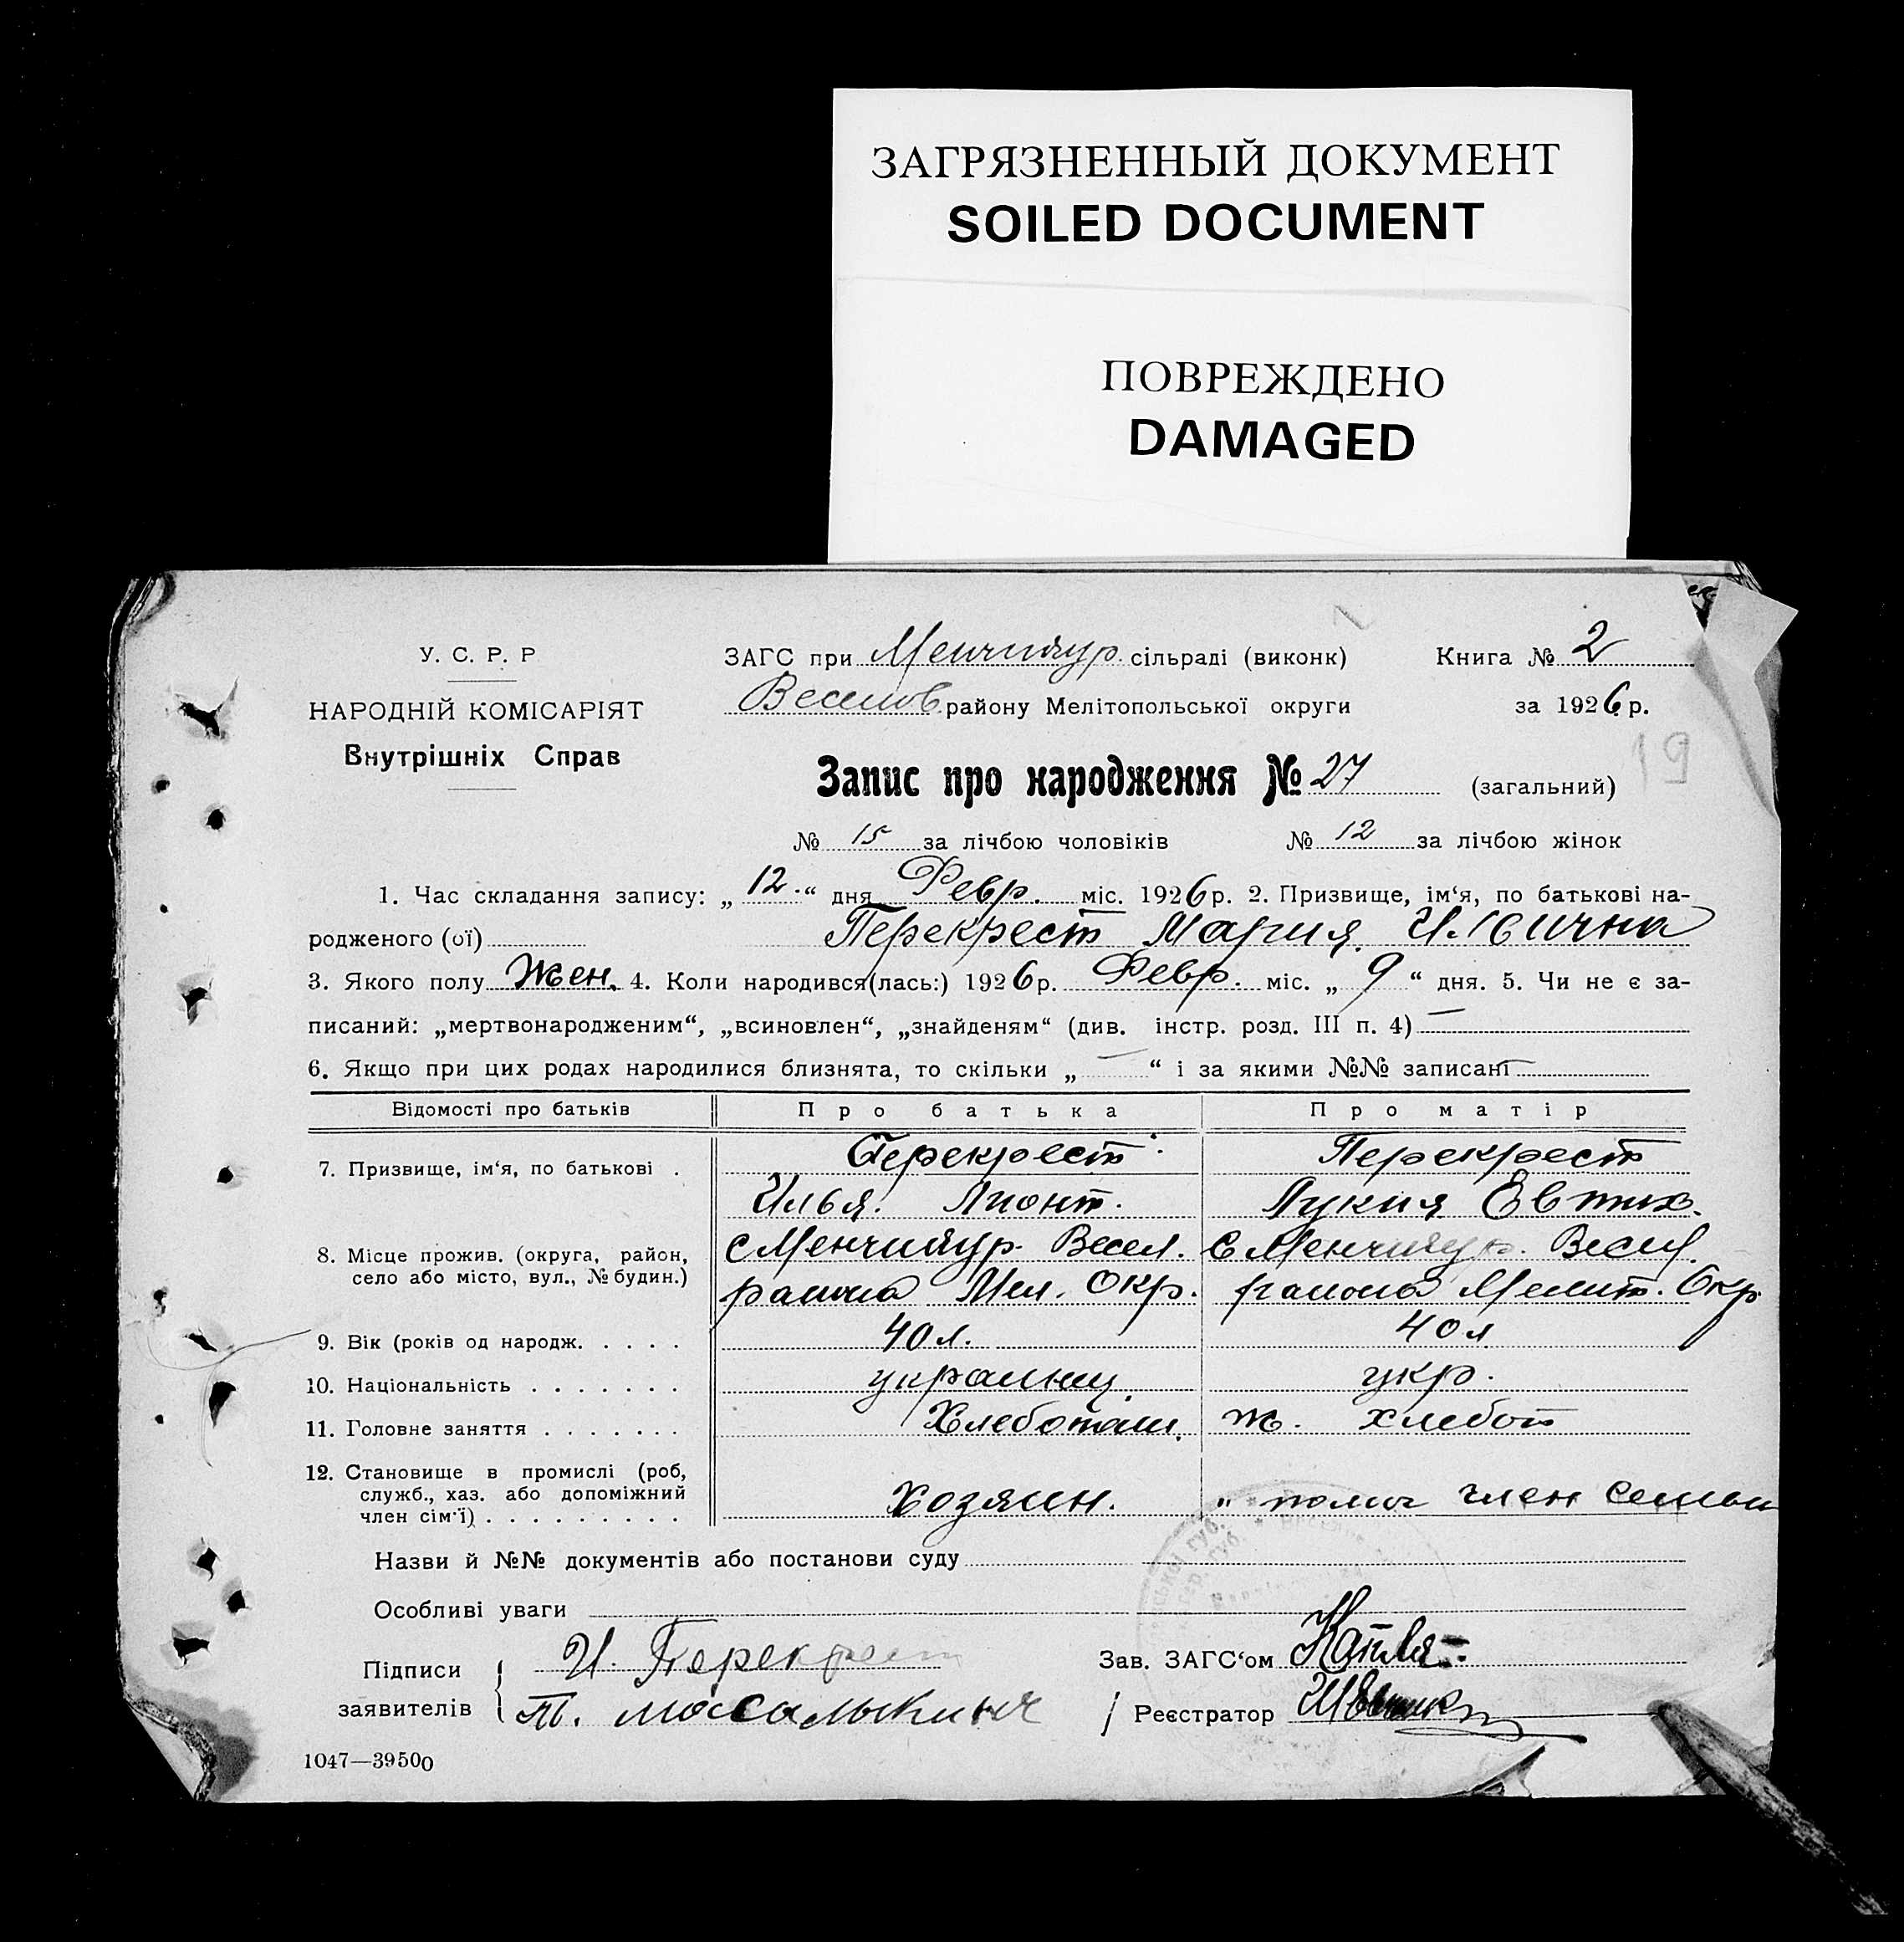 ЗАГРЯЗНЕННЫЙ ДОКУМЕНТ
SOILED DOCUMENT
ПОВРЕЖДЕНО
DAMAGED
У. С. Р. Р
НАРОДНІЙ КОМІСАРІЯТ
Внутрішніх Справ
ЗАГС при Менчикур. сільраді (виконк)
Веселов. району Мелітопольської округи
Книга № 2
за 1926 р.
19
Запис про народження № 27 (загальний)
№ 15 за лічбою чоловіків № 12 за лічбою жінок
1. Час складання запису: „ 12 “ дня Февр. міс. 1926 р. 2. Призвище, ім‘я, по батькові на-
родженого (ої) Перекрест Мария Ильична
3. Якого полу Жен. 4. Коли народився(лась:) 1926 р. Февр. міс. „ 9 “ дня. 5. Чи не є за-
писаний: „мертвонародженим“, „всиновлен“, „знайденям“ (див. інстр. розд. III п. 4) —
6. Якщо при цих родах народилися близнята, то скільки „ — “ і за якими №№ записані —
Відомості про батьків Про батька Про матір
7. Призвище, ім‘я, по батькові . Перекрест Перекрест
Илья. Лионт. Лукия Евтих.
8. Місце прожив. (округа, район, с Менчикур. Весел. с Менчикур. Весел.
село або місто, вул., № будин.) района Мел. Окр. района Мелит. Окр.
9. Вік (років од народж. . . . . 40 л. 40 л
10. Національність . . . . . . . украинец укр.
11. Головне заняття . . . . . . . Хлебопаш. ж. хлебоп
12. Становище в промислі (роб,
служб., хаз. або допоміжний Хозяин. " помог член семьи
член сім‘ї) . . . . . . . . .
Назви й №№ документів або постанови суду
Особливі уваги
Підписи И. Перекрест Зав. ЗАГС‘ом
заявителів Реєстратор
1047—39500